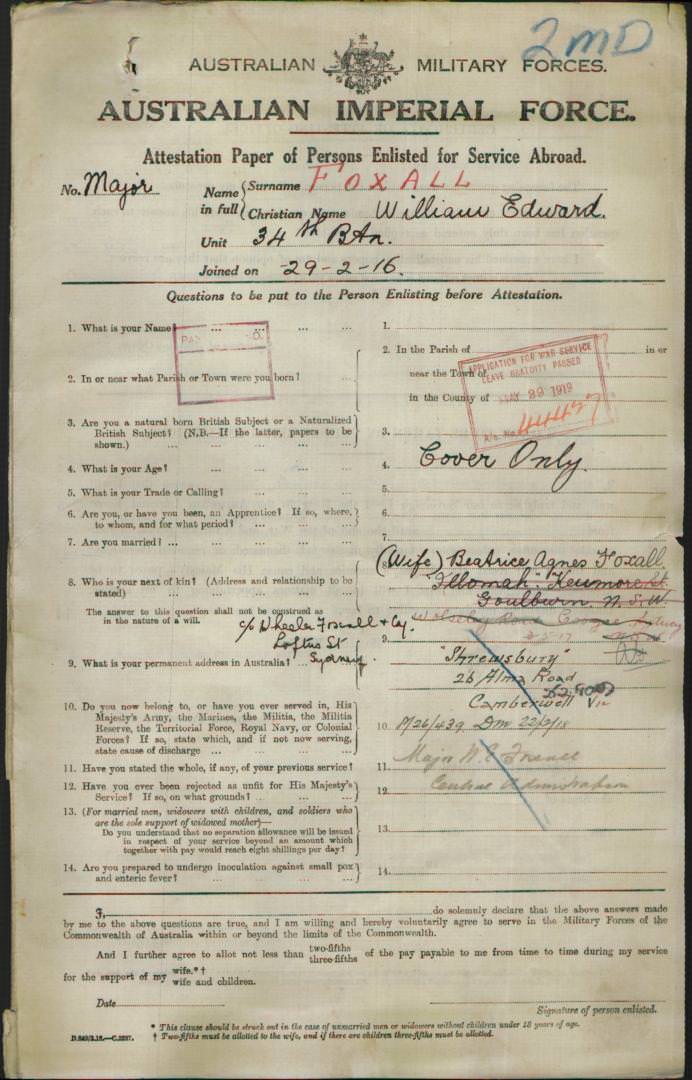 2 MD
AUSTRALIAN MILITARY FORCES.
AUSTRALIAN IMPERIAL FORCE.
Attestation Paper of Persons Enlisted for Service Abroad.
No. Major
Name in full { Surname FOXALL
Christian Name William Edward.
Unit 34th Btn.
Joined on 29-2-16.
Questions to be put to the Person Enlisting before Attestation.
1. What is your Name? ... ... ... 1.
2. In or near what Parish or Town were you born? 2. In the Parish of in or
near the Town of
in the County of
APPLICATION FOR WAR SERVICE
LEAVE GRATUITY PASSED
MAY 29 1919
A/c. No. 44427
3. Are you a natural born British Subject or a Naturalized
British Subject? (N.B.—If the latter, papers to be
shown.) ... ... ... ... 3.
4. What is your Age? ... ... ... 4. Cover Only.
5. What is your Trade or Calling? ... ... ... 5.
6. Are you, or have you been, an Apprentice? If so, where,
to whom, and for what period? ... ... ... 6.
7. Are you married? ... ... ... ... ... 7.
8. Who is your next of kin? (Address and relationship to be
stated) ... ... ... ... ...
The answer to this question shall not be construed as
in the nature of a will.
8. (Wife) Beatrice Agnes Foxall.
Kenmore St.
Goulburn. N.S.W.
Road Coogee Sydney
c/o Wheeler Foxall & Coy.
Loftus St
Sydney.
9. What is your permanent address in Australia? ... 9.
"Shrewsbury"
26 Alma Road
Camberwell Vic
10. Do you now belong to, or have you ever served in, His
Majesty's Army, the Marines, the Militia, the Militia
Reserve, the Territorial Force, Royal Navy, or Colonial
Forces? If so, state which, and if not now serving,
state cause of discharge ... ... ... ... 10.
11. Have you stated the whole, if any, of your previous service? 11. Major W. E. Foxall
12. Have you ever been rejected as unfit for His Majesty's
Service? If so, on what grounds? ... ... ... 12. Central Administration
13. (For married men, widowers with children, and soldiers who
are the sole support of widowed mother)—
Do you understand that no separation allowance will be issued
in respect of your service beyond an amount which
together with pay would reach eight shillings per day? 13.
14. Are you prepared to undergo inoculation against small pox
and enteric fever? ... ... ... ... 14.
I, do solemnly declare that the above answers made
by me to the above questions are true, and I am willing and hereby voluntarily agree to serve in the Military Forces of the
Commonwealth of Australia within or beyond the limits of the Commonwealth.
And I further agree to allot not less than two-fifths three-fifths of the pay payable to me from time to time during my service
for the support of my wife.* † wife and children.
Date
Signature of person enlisted.
* This clause should be struck out in the case of unmarried men or widowers without children under 18 years of age.
† Two-fifths must be allotted to the wife, and if there are children three-fifths must be allotted.